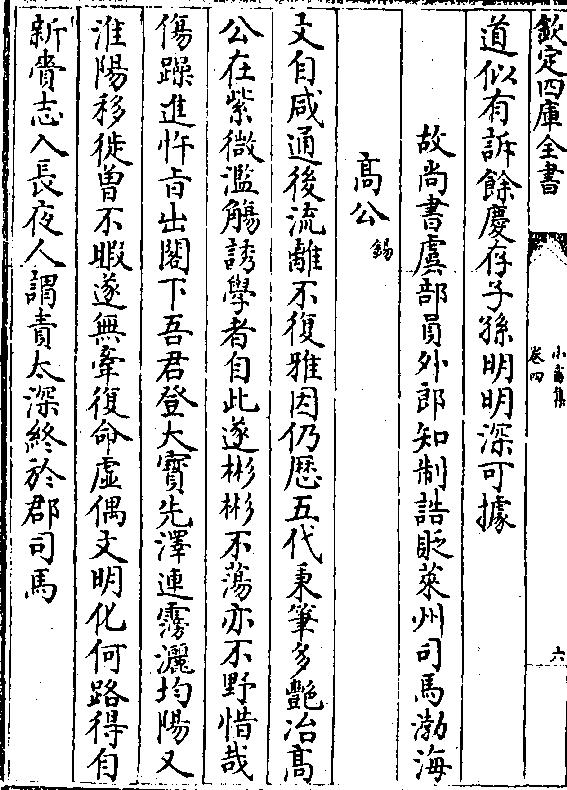 欽定四庫全書
小畜集
卷四
六
道似有訴餘慶存子孫明明深可據
故尚書虞部員外郎知制誥貶萊州司馬渤海
高公錫
文自咸通後流離不復雅因仍歴五代秉筆多艷冶高
公在紫微濫觴誘學者自此遂彬彬不蕩亦不野惜哉
傷躁進忤㫖出閣下吾君登大寶先澤連霶灑均陽又
淮陽移徙曾不暇遂無牽復命虚偶文明化何路得自
新賫志入長夜人謂責太深終於郡司馬